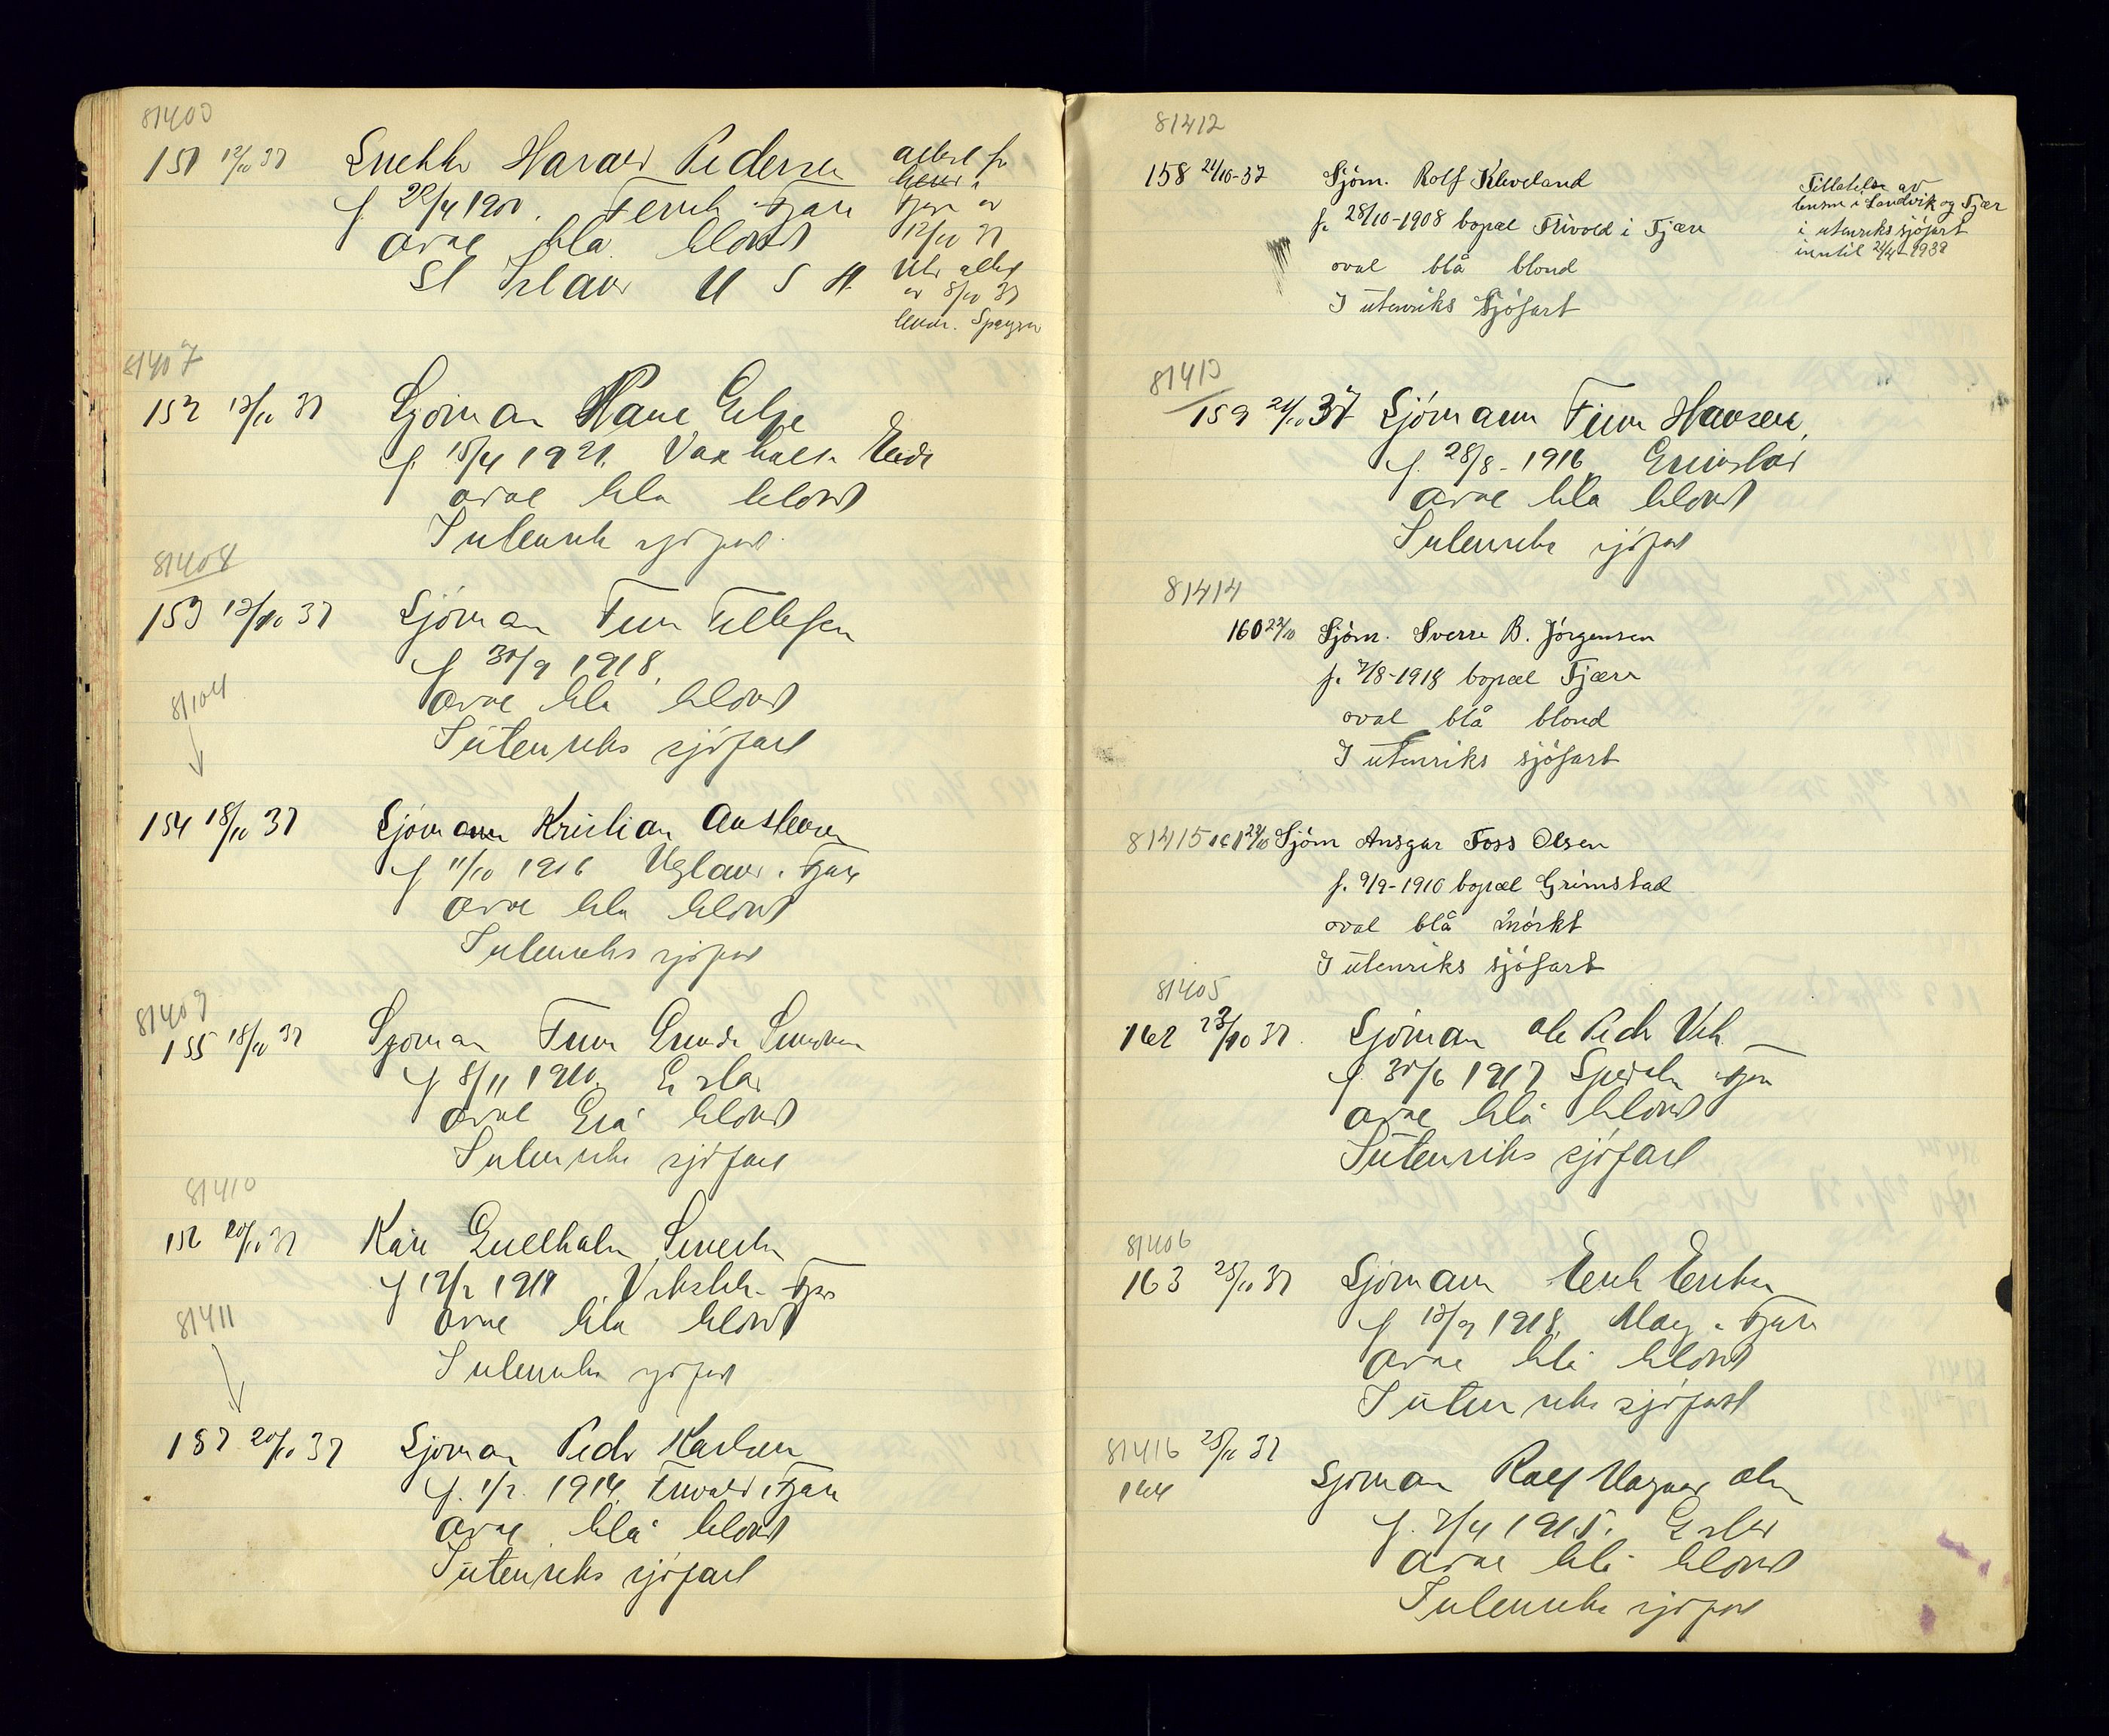 81400
151 12/10 37 Snekker Harald Pedersen
f. 22/4 1900. Fevik Fjære
oval blå blond
St Island U S A
attest fr
Fjære av
12/10 37
attest
av 8/10 37
81407
152 13/10 37 Sjöman Hans
f. 15/4 1921. Eide
oval blå blond
I utenriks sjöfart
81408
153 13/10 37 Sjöman Finn Tellefsen
f 30/9 1918.
oval blå blond
I utenriks sjöfart
81104
154 18/10 37 Sjömann Kristian
f 11/10 1916 Ugland i Fjære
oval blå blond
I utenriks sjöfart
81409
155 18/10 37 Sjöman Finn
f 8/11 1910. Gr stad
oval Grå blond
I utenriks sjöfart
81410
156 20/10 37 Kåre
f 12/2 1919. Fjære
oval blå blond
I utenriks sjöfart
81411
157 20/10 37 Sjöman Peder Karlsen
f. 1/2. 1914. Frivold i Fjære
oval blå blond
I utenriks sjöfart
81412
158 21/10-37 Sjöm. Rolf Kleveland
f. 28/10-1908 bopæl Frivold i Fjære
oval blå blond
I utenriks Sjöfart
Tillatelse av
lensm i Landvik og Fjære
i utenriks sjöfart
inntil 21/4-1938
81413
159 21/10 37 Sjömann Finn Hansen.
f. 28/8-1916. Grimstad
oval blå blond
I utenriks sjöfart
81414
160 22/10 Sjöm. Sverre B. Jörgensen
f. 7/8-1918 bopæl Fjære
oval blå blond
I utenriks sjöfart
81415 161 22/10 Sjöm Ansgar Foss Olsen
f. 9/9-1910 bopæl Grimstad
oval blå mörkt
I utenriks sjöfart
81405
162 23/10 37. Sjöman Ole Pedr Vik
f. 30/6 1917 Fjære
oval blå blond
I utenriks sjöfart
81406
163 25/10 37 Sjömann Erik Eriksen
f 13/9 1918. Fjære
oval blå blond
I utenriks sjöfart
81416 25/10 37
164 Sjöman Rolf Olsen
f. 7/4 1915. Gr stad
oval blå blond
I utenriks sjöfart